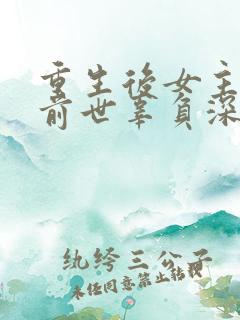 重生后女主
前世辜负深
纨绔三公子
未任同意禁止转载